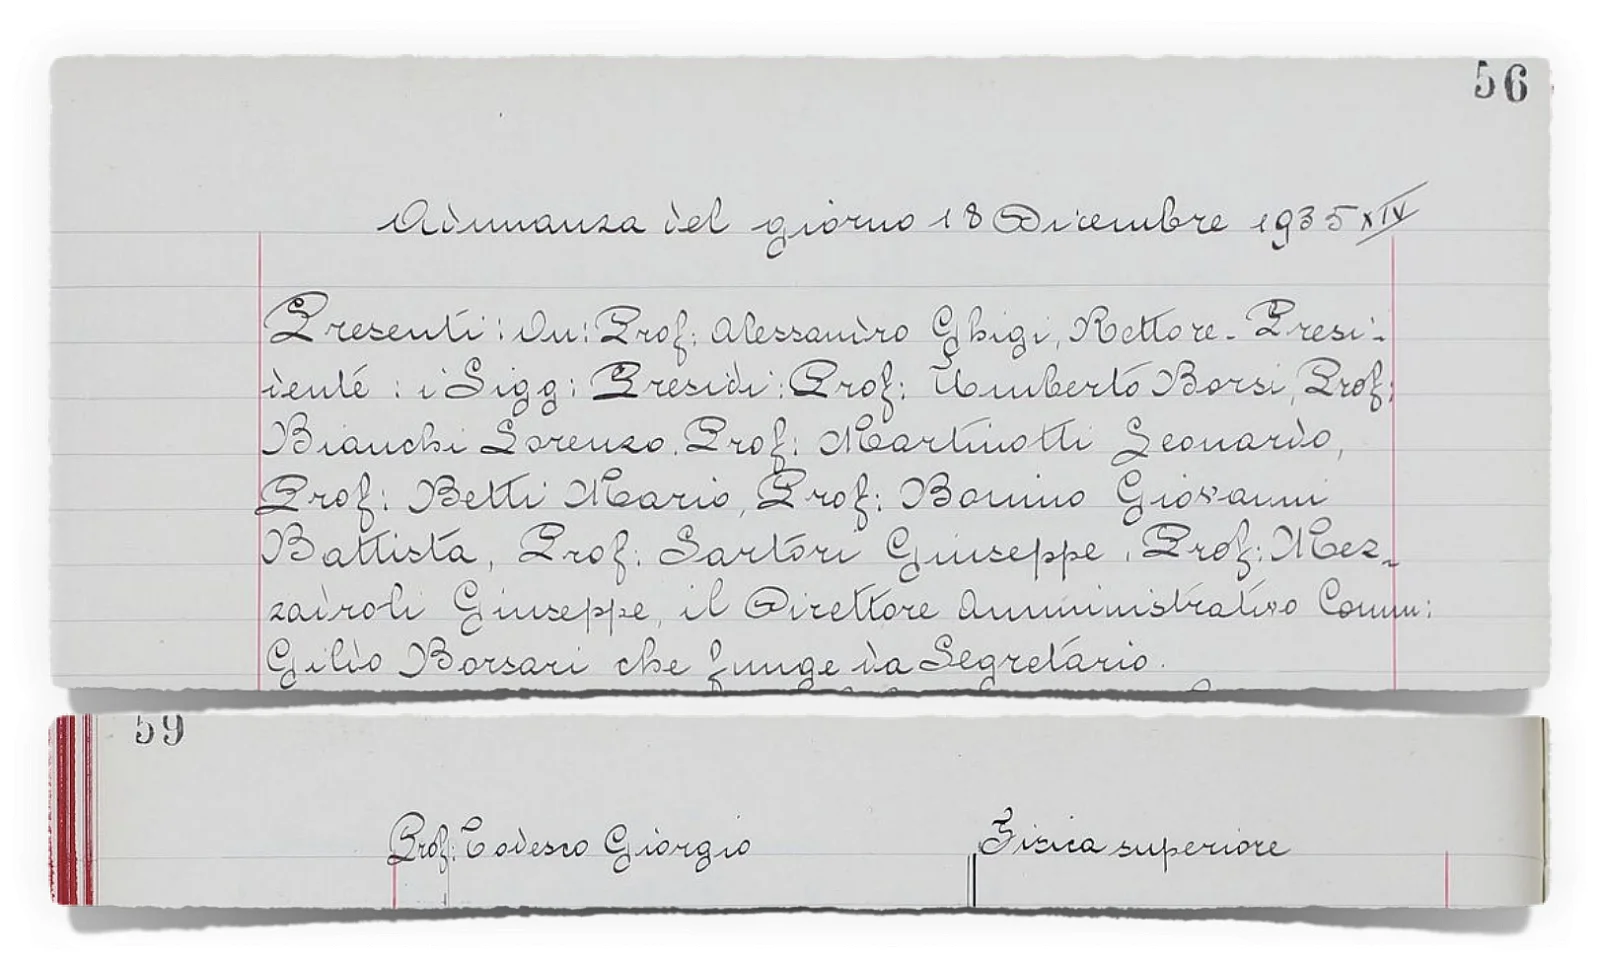 56
Adunanza del giorno 18 Dicembre 1935 XIV
Presenti: On: Prof: Alessandro Ghigi, Rettore-Presi-
dente: i Sigg: Presidi: Prof: Umberto Borsi, Prof:
Bianchi Lorenzo. Prof: Martinotti Leonardo,
Prof: Betti Mario, Prof: Bonino Giovanni
Battista, Prof: Sartori Giuseppe, Prof: Mez-
zadroli Giuseppe, il Direttore Amministrativo Comm:
Gildo Borsari che funge da Segretario.
59
Prof: Todesco Giorgio Fisica superiore